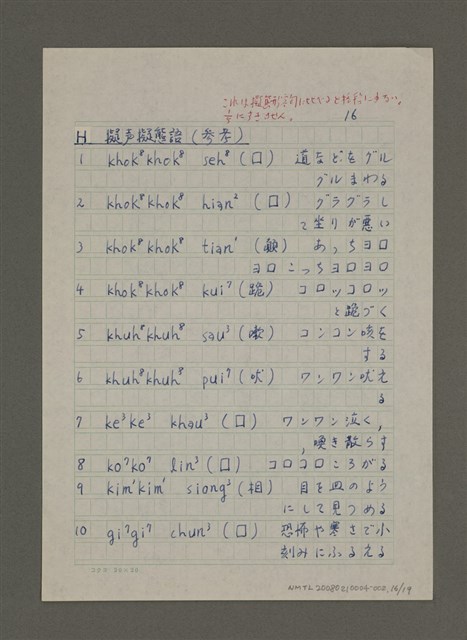 これは擬態形容詞に比べると非常に少ない。
1/3にすぎません。
16
H 擬声擬態語(参考)
1 khok⁸khok⁸ seh⁸(口) 道などをグル
グルまわる
2 khok⁸khok⁸ hian²(口) グラグラし
て坐りが悪い
3 khok⁸khok⁸ tian¹(顛) あっちヨロ
ヨロこっちヨロヨロ
4 khok⁸khok⁸ kui⁷(跪) コロッコロッ
と跪づく
5 khuh⁸khuh⁸ sau³(嗽) コンコン咳を
する
6 khuh⁸khuh⁸ pui⁷(吠) ワンワン吠え
る
7 ke³ke³ khau³(口) ワンワン泣く,
,喚き散らす
8 ko⁷ko⁷ lin³(口) コロコロころがる
9 kim¹kim¹ siong³(相) 目を皿のよう
にして見つめる
10 gi⁷gi⁷ chun³(口) 恐怖や寒さで小
刻みにふるえる
NMTL20080210004-002, 16/19